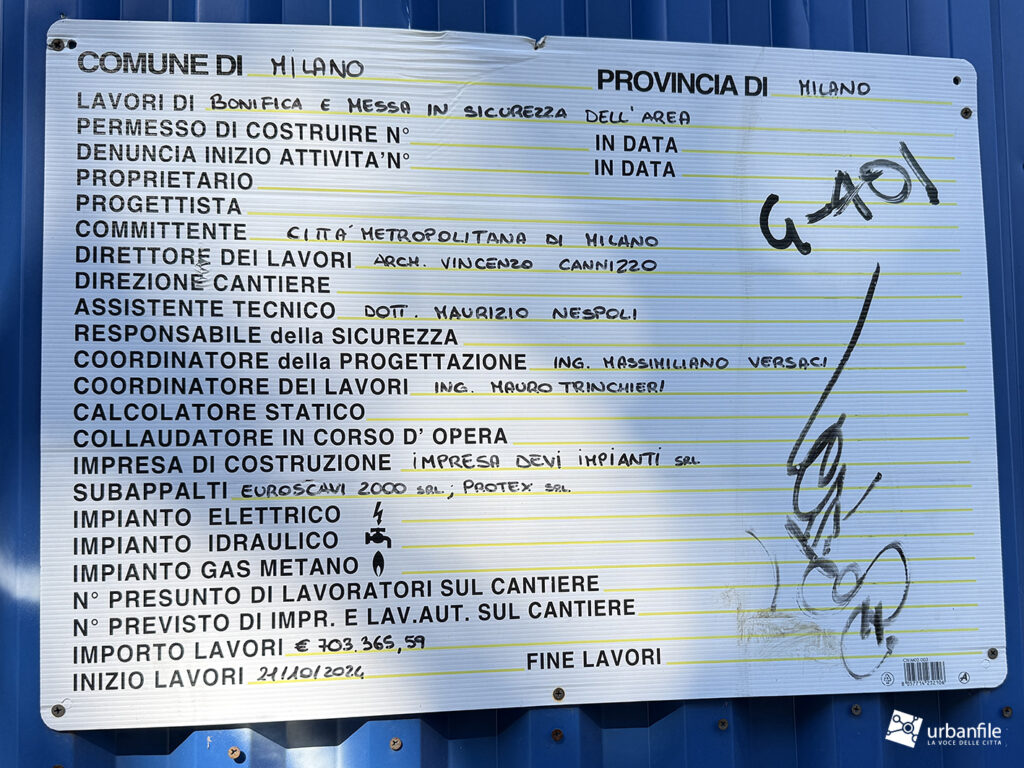 COMUNE DI MILANO PROVINCIA DI MILANO
LAVORI DI BONIFICA E MESSA IN SICUREZZA DELL'AREA
PERMESSO DI COSTRUIRE N° IN DATA
DENUNCIA INIZIO ATTIVITA'N° IN DATA
PROPRIETARIO
PROGETTISTA
COMMITTENTE CITTÀ METROPOLITANA DI MILANO
DIRETTORE DEI LAVORI ARCH. VINCENZO CANNIZZO
DIREZIONE CANTIERE
ASSISTENTE TECNICO DOTT. MAURIZIO NESPOLI
RESPONSABILE della SICUREZZA
COORDINATORE della PROGETTAZIONE ING. MASSIMILIANO VERSACI
COORDINATORE DEI LAVORI ING. MAURO TRINCHIERI
CALCOLATORE STATICO
COLLAUDATORE IN CORSO D' OPERA
IMPRESA DI COSTRUZIONE IMPRESA DEVI IMPIANTI SRL
SUBAPPALTI EUROSCAVI 2000 SRL; PROTEX SRL
IMPIANTO ELETTRICO
IMPIANTO IDRAULICO
IMPIANTO GAS METANO
N° PRESUNTO DI LAVORATORI SUL CANTIERE
N° PREVISTO DI IMPR. E LAV.AUT. SUL CANTIERE
IMPORTO LAVORI € 703.365,59
INIZIO LAVORI 21/10/2024 FINE LAVORI
G-401
urbanfile
LA VOCE DELLE CITTÀ